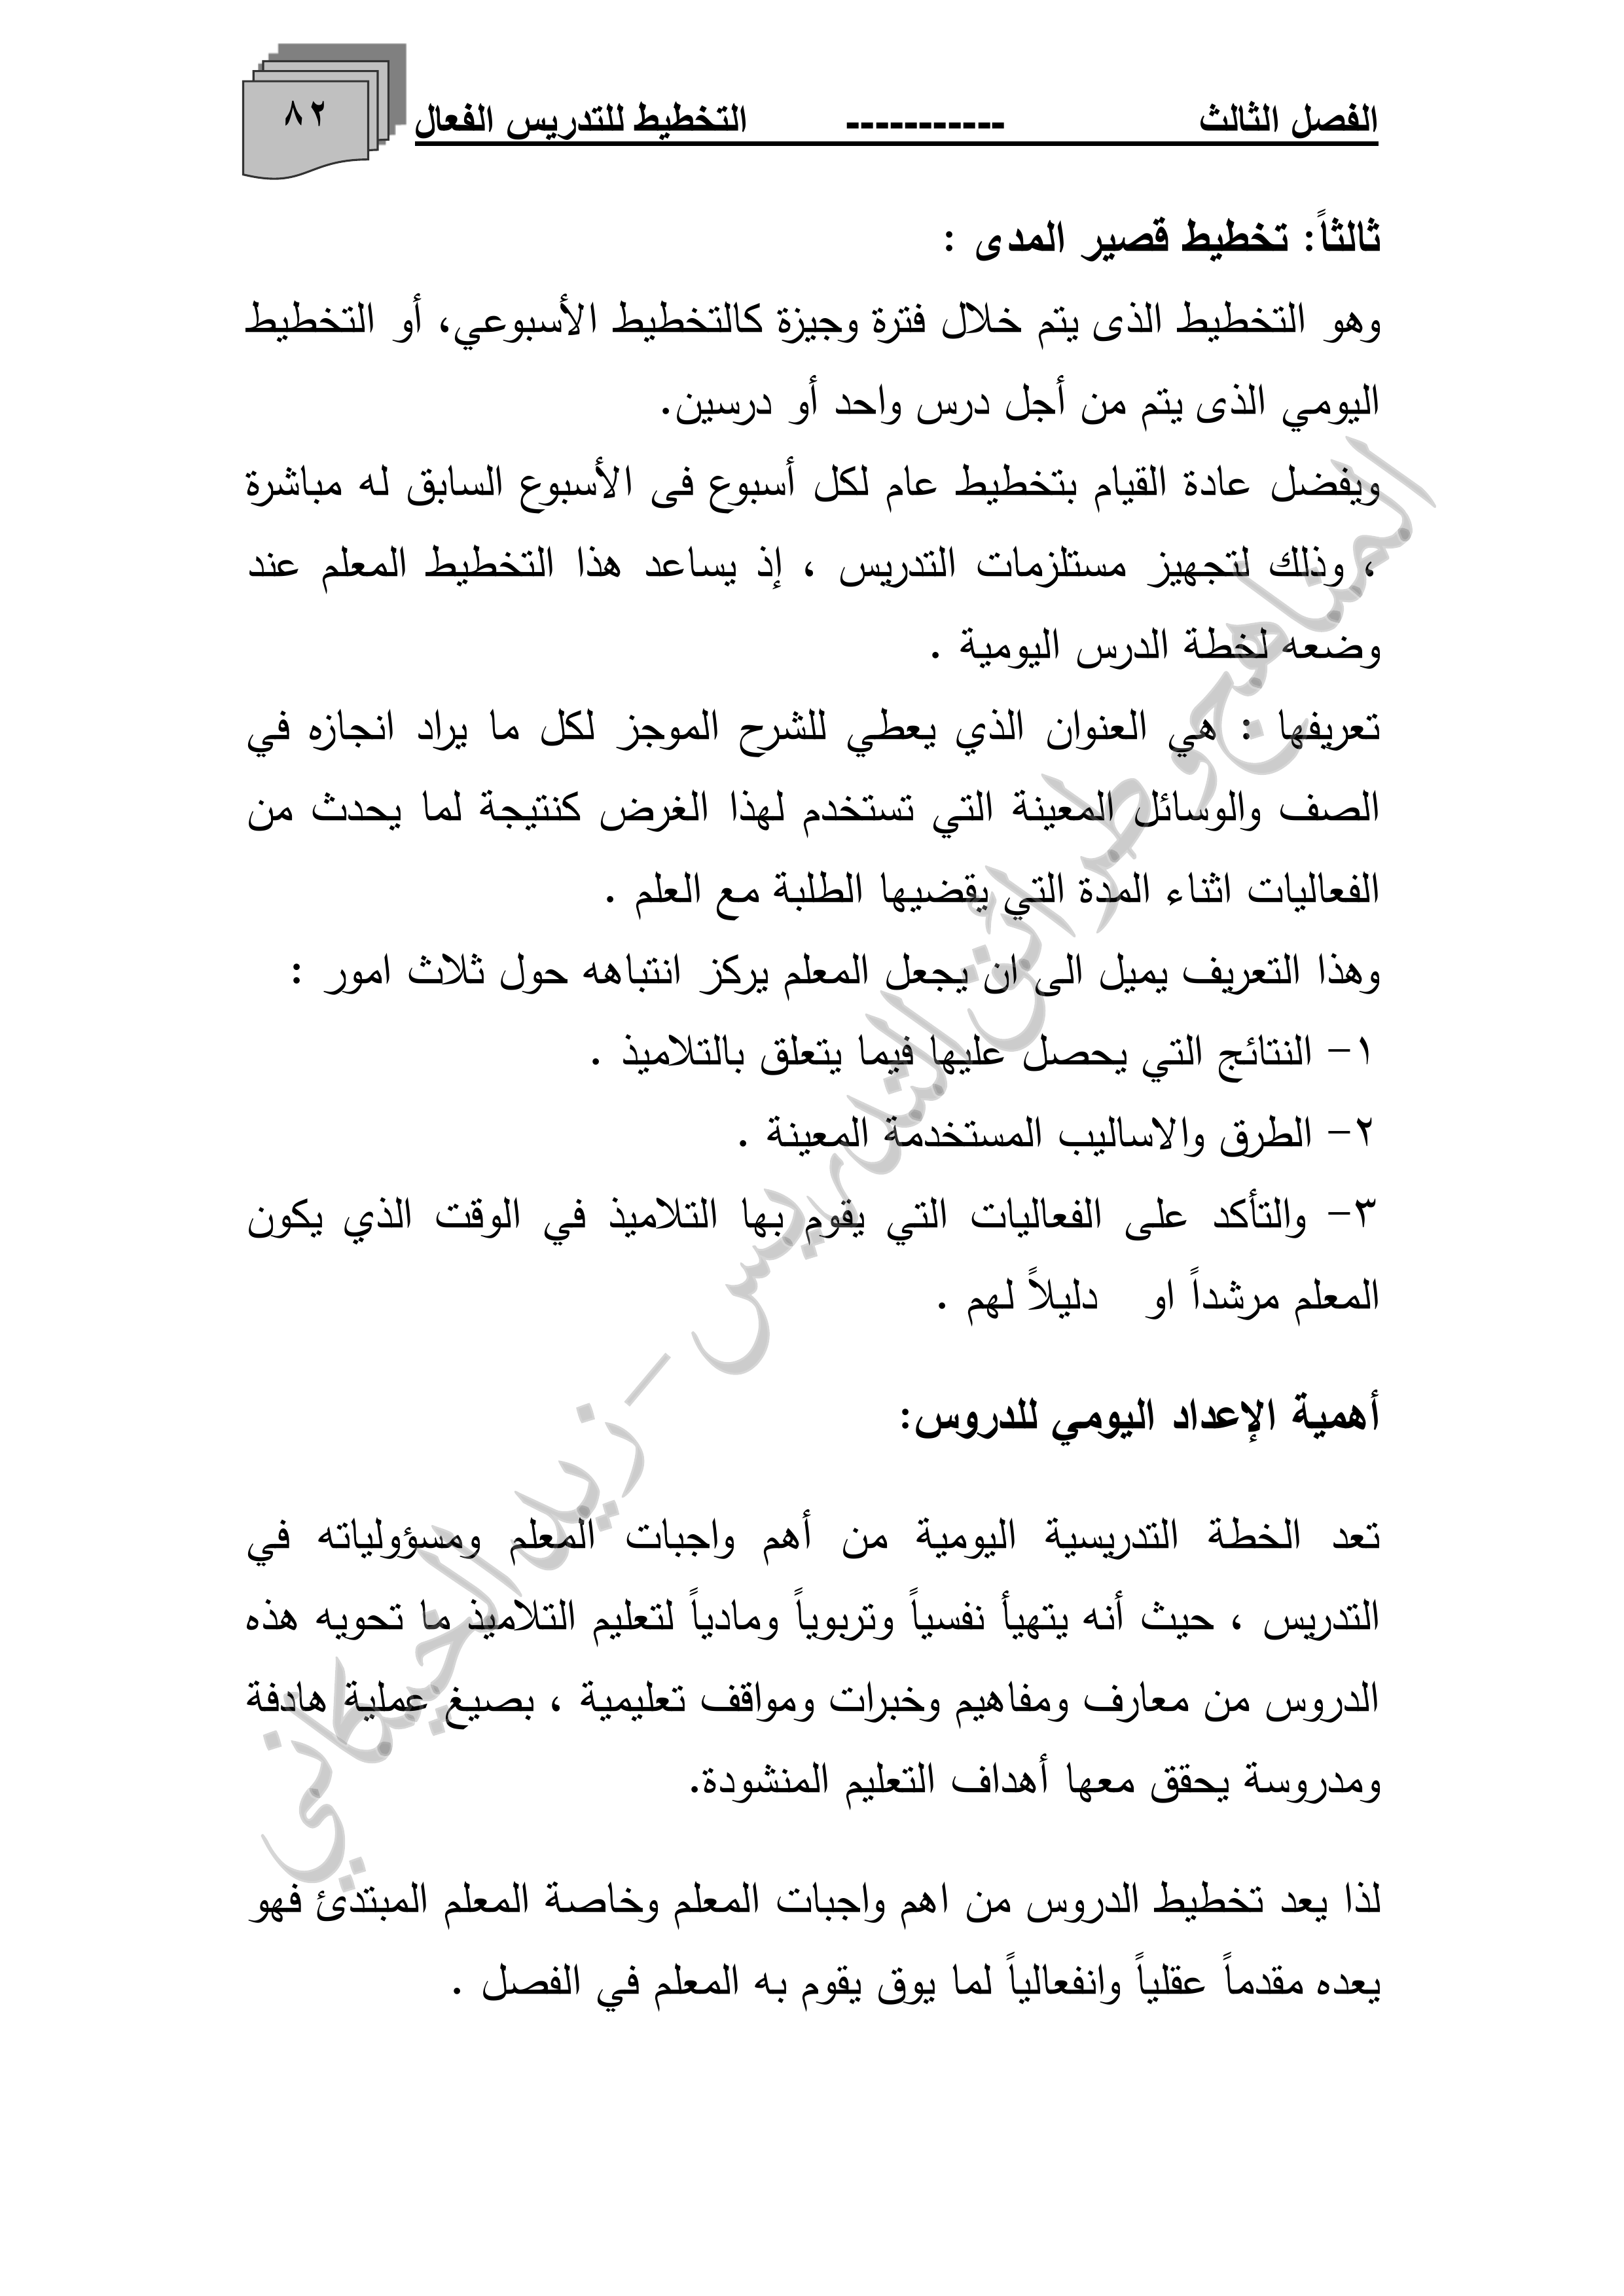 الفصل الثالث ----------- التخطيط للتدريس الفعال
٨٢
ثالثاً: تخطيط قصير المدى :
وهو التخطيط الذى يتم خلال فترة وجيزة كالتخطيط الأسبوعي، أو التخطيط
اليومي الذى يتم من أجل درس واحد أو درسين.
ويفضل عادة القيام بتخطيط عام لكل أسبوع فى الأسبوع السابق له مباشرة
، وذلك لتجهيز مستلزمات التدريس ، إذ يساعد هذا التخطيط المعلم عند
وضعه لخطة الدرس اليومية .
تعريفها : هي العنوان الذي يعطي للشرح الموجز لكل ما يراد انجازه في
الصف والوسائل المعينة التي تستخدم لهذا الغرض كنتيجة لما يحدث من
الفعاليات اثناء المدة التي يقضيها الطلبة مع العلم .
وهذا التعريف يميل الى ان يجعل المعلم يركز انتباهه حول ثلاث امور :
١- النتائج التي يحصل عليها فيما يتعلق بالتلاميذ .
٢- الطرق والاساليب المستخدمة المعينة .
٣- والتأكد على الفعاليات التي يقوم بها التلاميذ في الوقت الذي يكون
المعلم مرشداً او دليلاً لهم .
أهمية الإعداد اليومي للدروس:
تعد الخطة التدريسية اليومية من أهم واجبات المعلم ومسؤولياته في
التدريس ، حيث أنه يتهيأ نفسياً وتربوياً ومادياً لتعليم التلاميذ ما تحويه هذه
الدروس من معارف ومفاهيم وخبرات ومواقف تعليمية ، بصيغ عملية هادفة
ومدروسة يحقق معها أهداف التعليم المنشودة.
لذا يعد تخطيط الدروس من اهم واجبات المعلم وخاصة المعلم المبتدئ فهو
يعده مقدماً عقلياً وانفعالياً لما يوق يقوم به المعلم في الفصل .
المناهج وطرائق التدريس - زيد الخيكاني